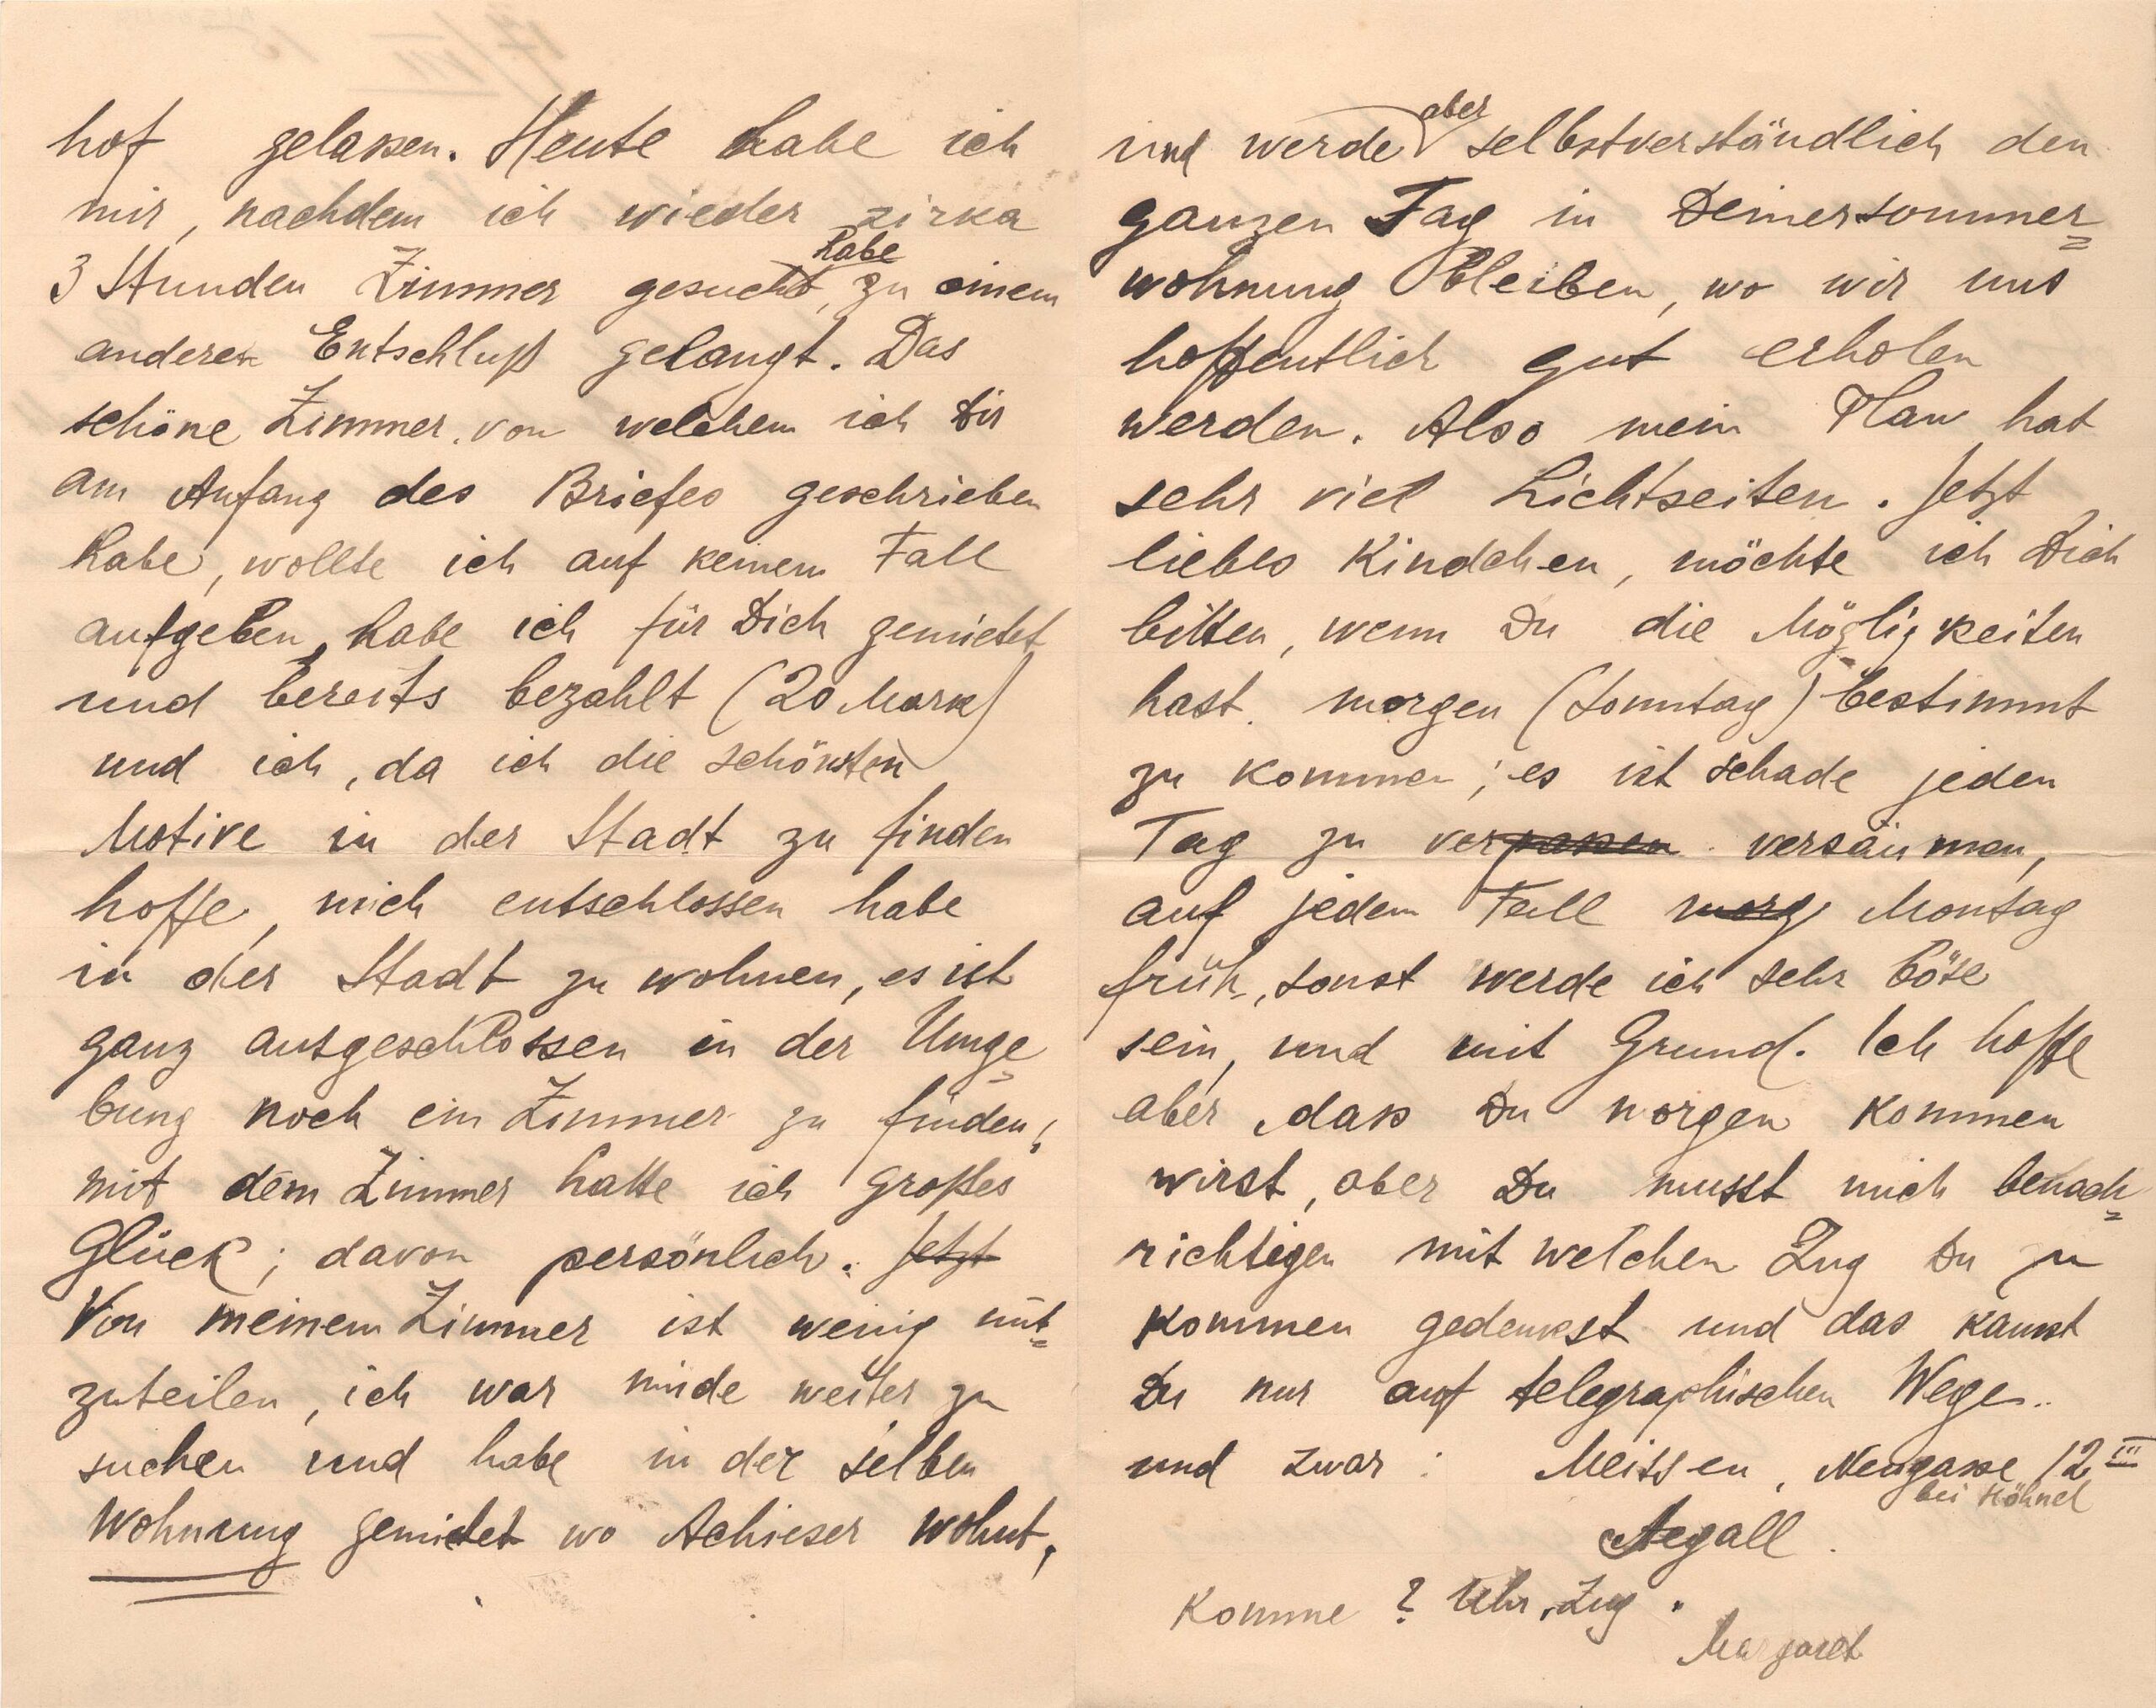 hof gelassen. Heute habe ich
mir, nachdem ich wieder zirka
3 Stunden Zimmer gesucht habe, zu einem
anderen Entschluß gelangt. Das
schöne Zimmer, von welchem ich Dir
am Anfang des Briefes geschrieben
habe, wollte ich auf keinem Fall
aufgeben, habe ich für Dich gemietet
und bereits bezahlt (20 Mark)
und ich, da ich die schönsten
Motive in der Stadt zu finden
hoffe, mich entschlossen habe
in der Stadt zu wohnen, es ist
ganz ausgeschlossen in der Umge=
bung noch ein Zimmer zu finden,
mit dem Zimmer hatte ich großes
Glück; davon persönlich. Jetzt
Von meinem Zimmer ist wenig mit=
zuteilen, ich war müde weiter zu
suchen und habe in der selben
Wohnung gemietet wo Achieser wohnt,
und werde aber selbstverständlich den
ganzen Tag in Deiner sommer=
wohnung bleiben, wo wir uns
hoffentlich gut erholen
werden. Also mein Plan hat
sehr viel Lichtseiten. Jetzt
liebes Kindchen, möchte ich Dich
bitten, wenn Du die Mögligkeiten
hast. morgen (Sonntag) bestimmt
zu kommen; es ist schade jeden
Tag zu verpassen versäumen,
auf jedem Fall morg Montag
früh, sonst werde ich sehr böse
sein, und mit Grund. Ich hoffe
aber, dass Du morgen kommen
wirst, aber Du musst mich benach=
richtigen mit welchen Zug Du zu
kommen gedenkst und das kannst
Du nur auf telegraphischen Wege..
und zwar: Meissen, Neugasse 12 III
bei Höhnel
Aegall.
Komme ? Uhr, Zug.
Margaret